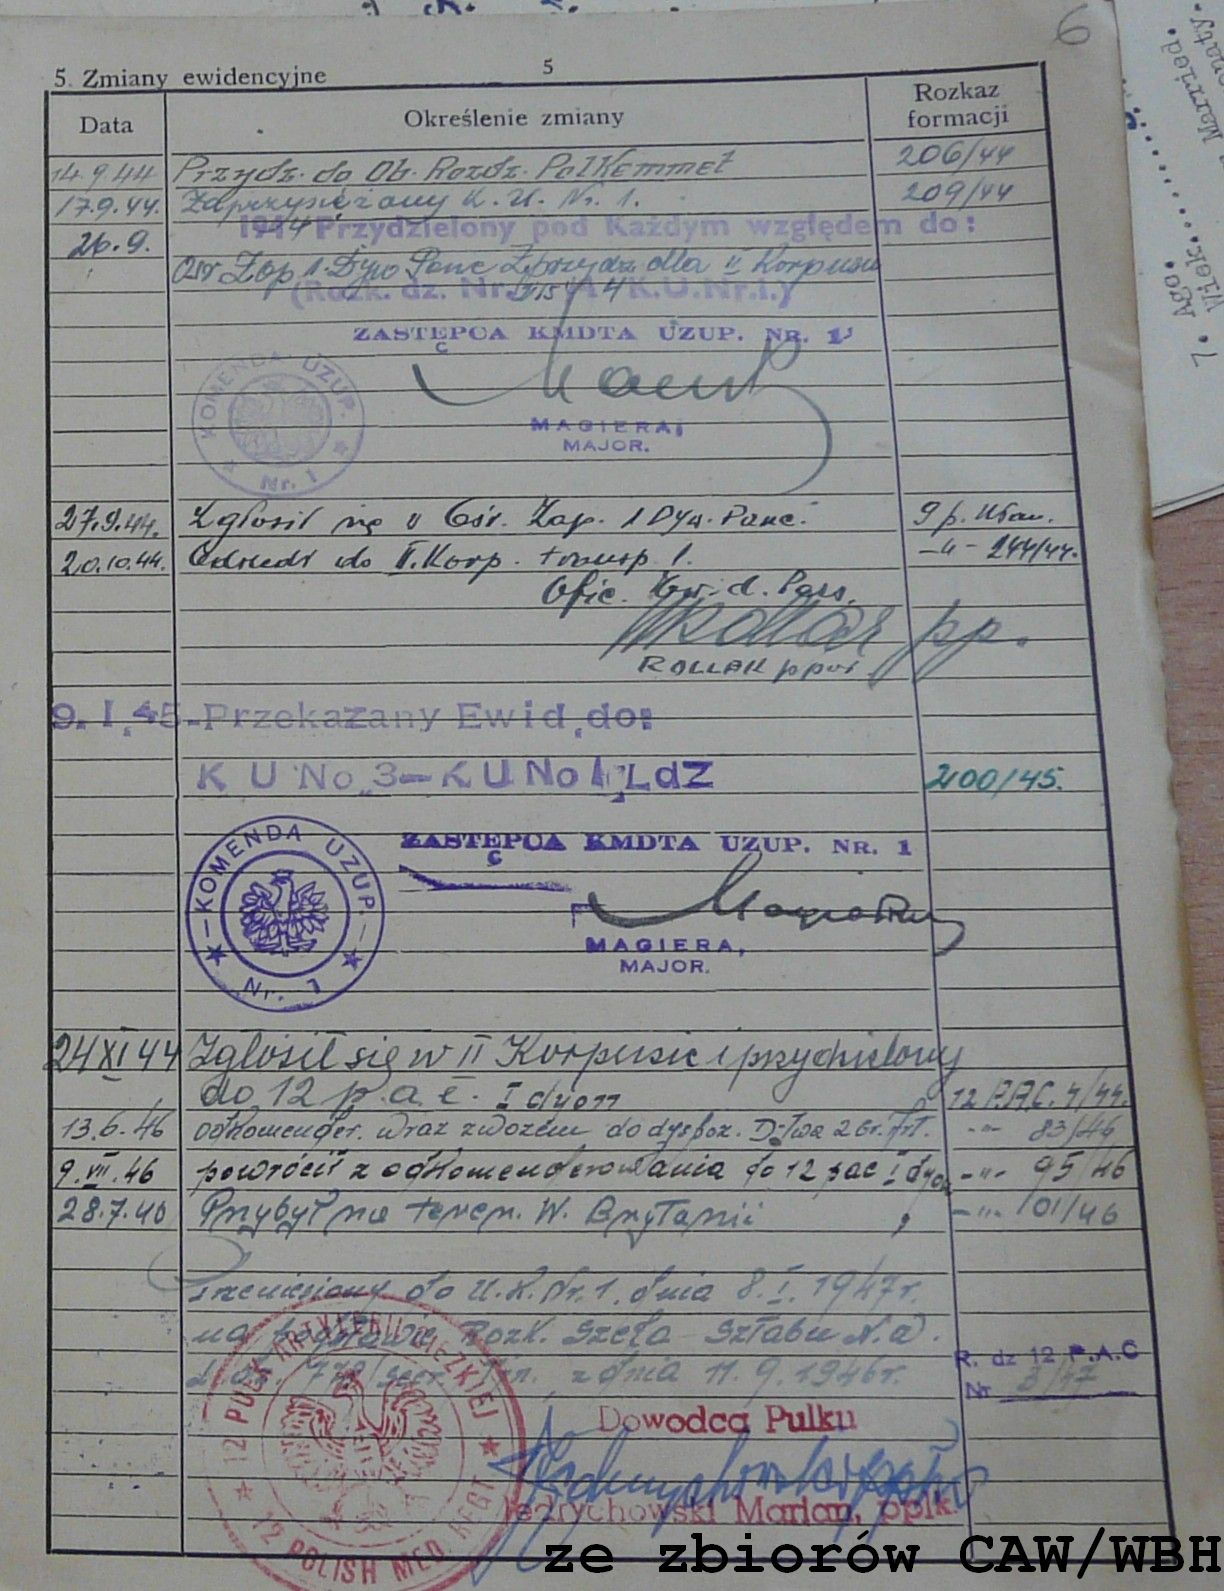 6
5. Zmiany ewidencyjne
5
Data Określenie zmiany Rozkaz formacji
14.9.44 Przydz. do Ob. Rozdz. Polkemmet 206/44
17.9.44. Zaprzysiężony K. U. Nr. 1. 209/44
26.9. 1944 Przydzielony pod Każdym względem do:
Ośr Zap 1. Dyw Panc Zprzydz dla II Korpusu
(Rozk. dz. Nr. K.U.Nr.1.)
ZASTĘPCA KMDTA UZUP. NR. 1
KOMENDA UZUP. Nr. 1
MAGIERA,
MAJOR.
27.9.44. Zgłosił się w Ośr. Zap. 1 Dyw. Panc. 9 p. Ułan.
20.10.44. Odszedł do II. Korp. transp 1. -"- 244/44.
Ofic. Ew. d. Pers.
ROLLAK ppor.
9. I. 45 - Przekazany Ewid. do:
K U No 3 - K U No 1, LdZ 2100/45.
ZASTĘPCA KMDTA UZUP. NR. 1
KOMENDA UZUP. Nr. 1
MAGIERA,
MAJOR.
24 XI 44 Zgłosił się w II Korpusie i przydzielony
do 12 p.a.c. I dyon 12 P.A.C. 4/44.
13.6.46 odkomender. wraz z wozem do dyspoz. D-twa 2 Gr. Art. -"- 83/46
9. VII. 46 powrócił z odkomenderowania do 12 pac I dyon -"- 95/46
28.7.46 Przybył na teren. W. Brytanii -"- 101/46
Przeniesiony do U.K. Nr. 1. dnia 8. I. 1947 r.
na podstawie Rozk. Szefa Sztabu N.W.
L.dz. 779/ z dnia 11.9.1946 r. R. dz 12 P.A.C
Nr 3/47
12 PUŁK ARTYLERII CIĘŻKIEJ
12 POLISH MED. REGT
Dowódca Pułku
Jędrychowski Marian, ppłk.
ze zbiorów CAW/WBH
7. Ago.
Wiek
Married.